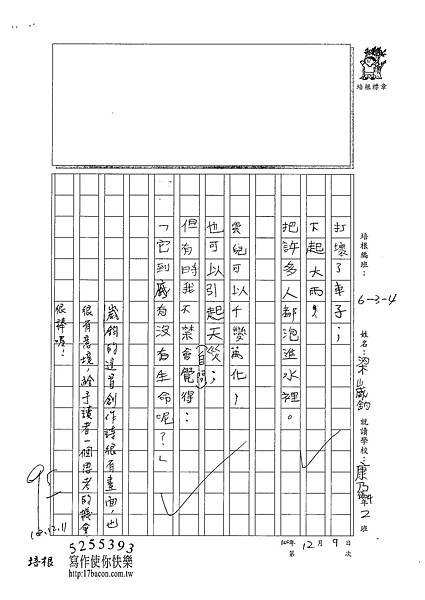 培根標章
培根編班：6-3-4
姓名：梁崴鈞
就讀學校：康乃爾2班
打壞了車子；
下起大雨，
把許多人都泡進水裡。
雲兒可以千變萬化，
也可以引起天災；
但有時我不禁會覺得：
自問
「它到底有沒有生命呢？」
崴鈞的這首創作詩很有畫面，也
很有意境，給予讀者一個思考的機會，
很棒喔！
95
100.12.11
100年12月9日
第 次
培根
5255393
寫作使你快樂
http://17bacon.com.tw